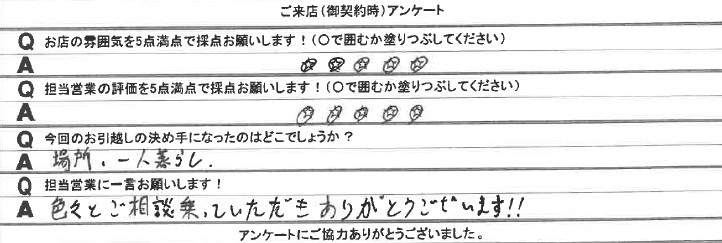 ご来店(御契約時)アンケート
Q お店の雰囲気を5点満点で採点お願いします!(〇で囲むか塗りつぶしてください)
A ☆☆☆☆☆
Q 担当営業の評価を5点満点で採点お願いします!(〇で囲むか塗りつぶしてください)
A ☆☆☆☆☆
Q 今回のお引越しの決め手になったのはどこでしょうか?
A 場所、一人暮らし.
Q 担当営業に一言お願いします!
A 色々とご相談乗っていただきありがとうございます!!
アンケートにご協力ありがとうございました。